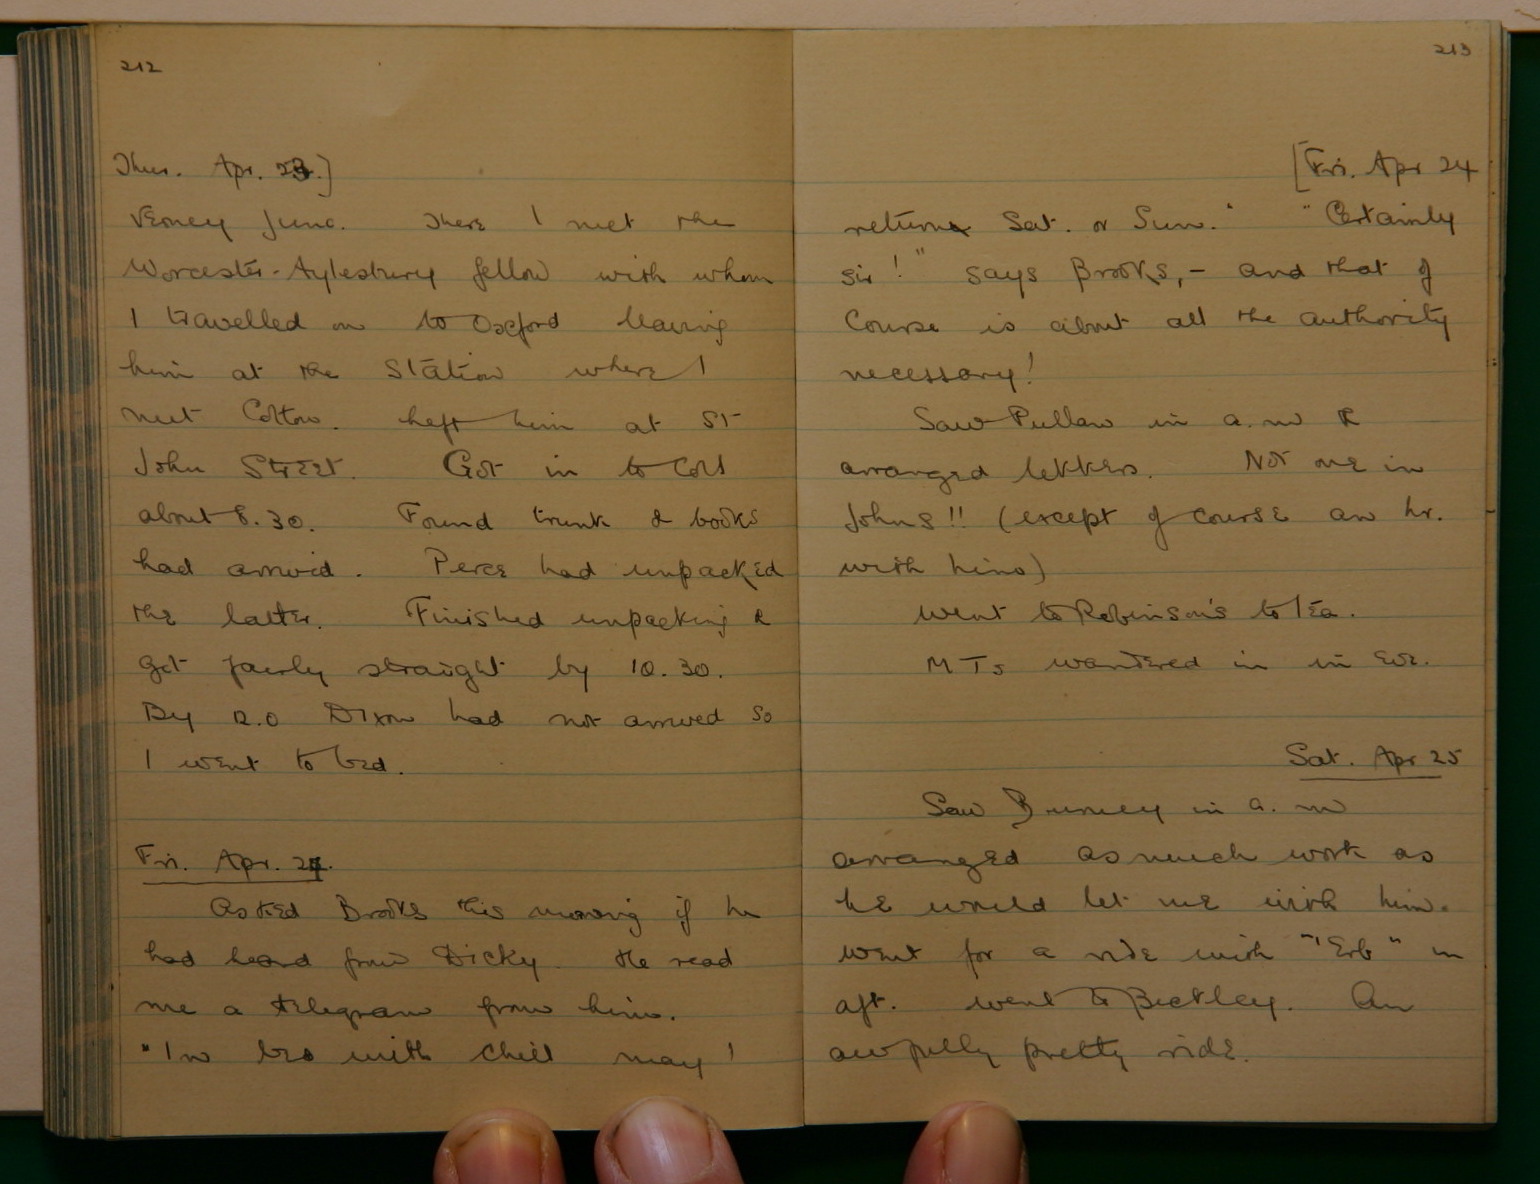 212
Thur. Apr. 23.]
Verney Junc. There I met the
Worcester-Aylesbury fellow with whom
I travelled on to Oxford leaving
him at the station where I
met Cotton. Left him at St
John Street. Got in to Coll
about 8.30. Found trunk & books
had arrived. Perce had unpacked
the latter. Finished unpacking &
got fairly straight by 10.30.
By 12.0 Dixon had not arrived so
I went to bed.
Fri. Apr. 24.
Asked Brooks this morning if he
had heard from Dicky. He read
me a telegram from him.
"In bed with chill may I
213
[Fri. Apr 24
return Sat. or Sun." "Certainly
sir!" says Brooks, - and that of
course is about all the authority
necessary!
Saw Pullan in a.m &
arranged lekkers. Not one in
Johns!! (except of course an hr.
with him)
Went to Robinson's to tea.
MTs wandered in in eve.
Sat. Apr 25
Saw Burney in a.m
arranged as much work as
he would let me with him.
Went for a ride with "'Erb" in
aft. Went to Beckley. An
awfully pretty ride.